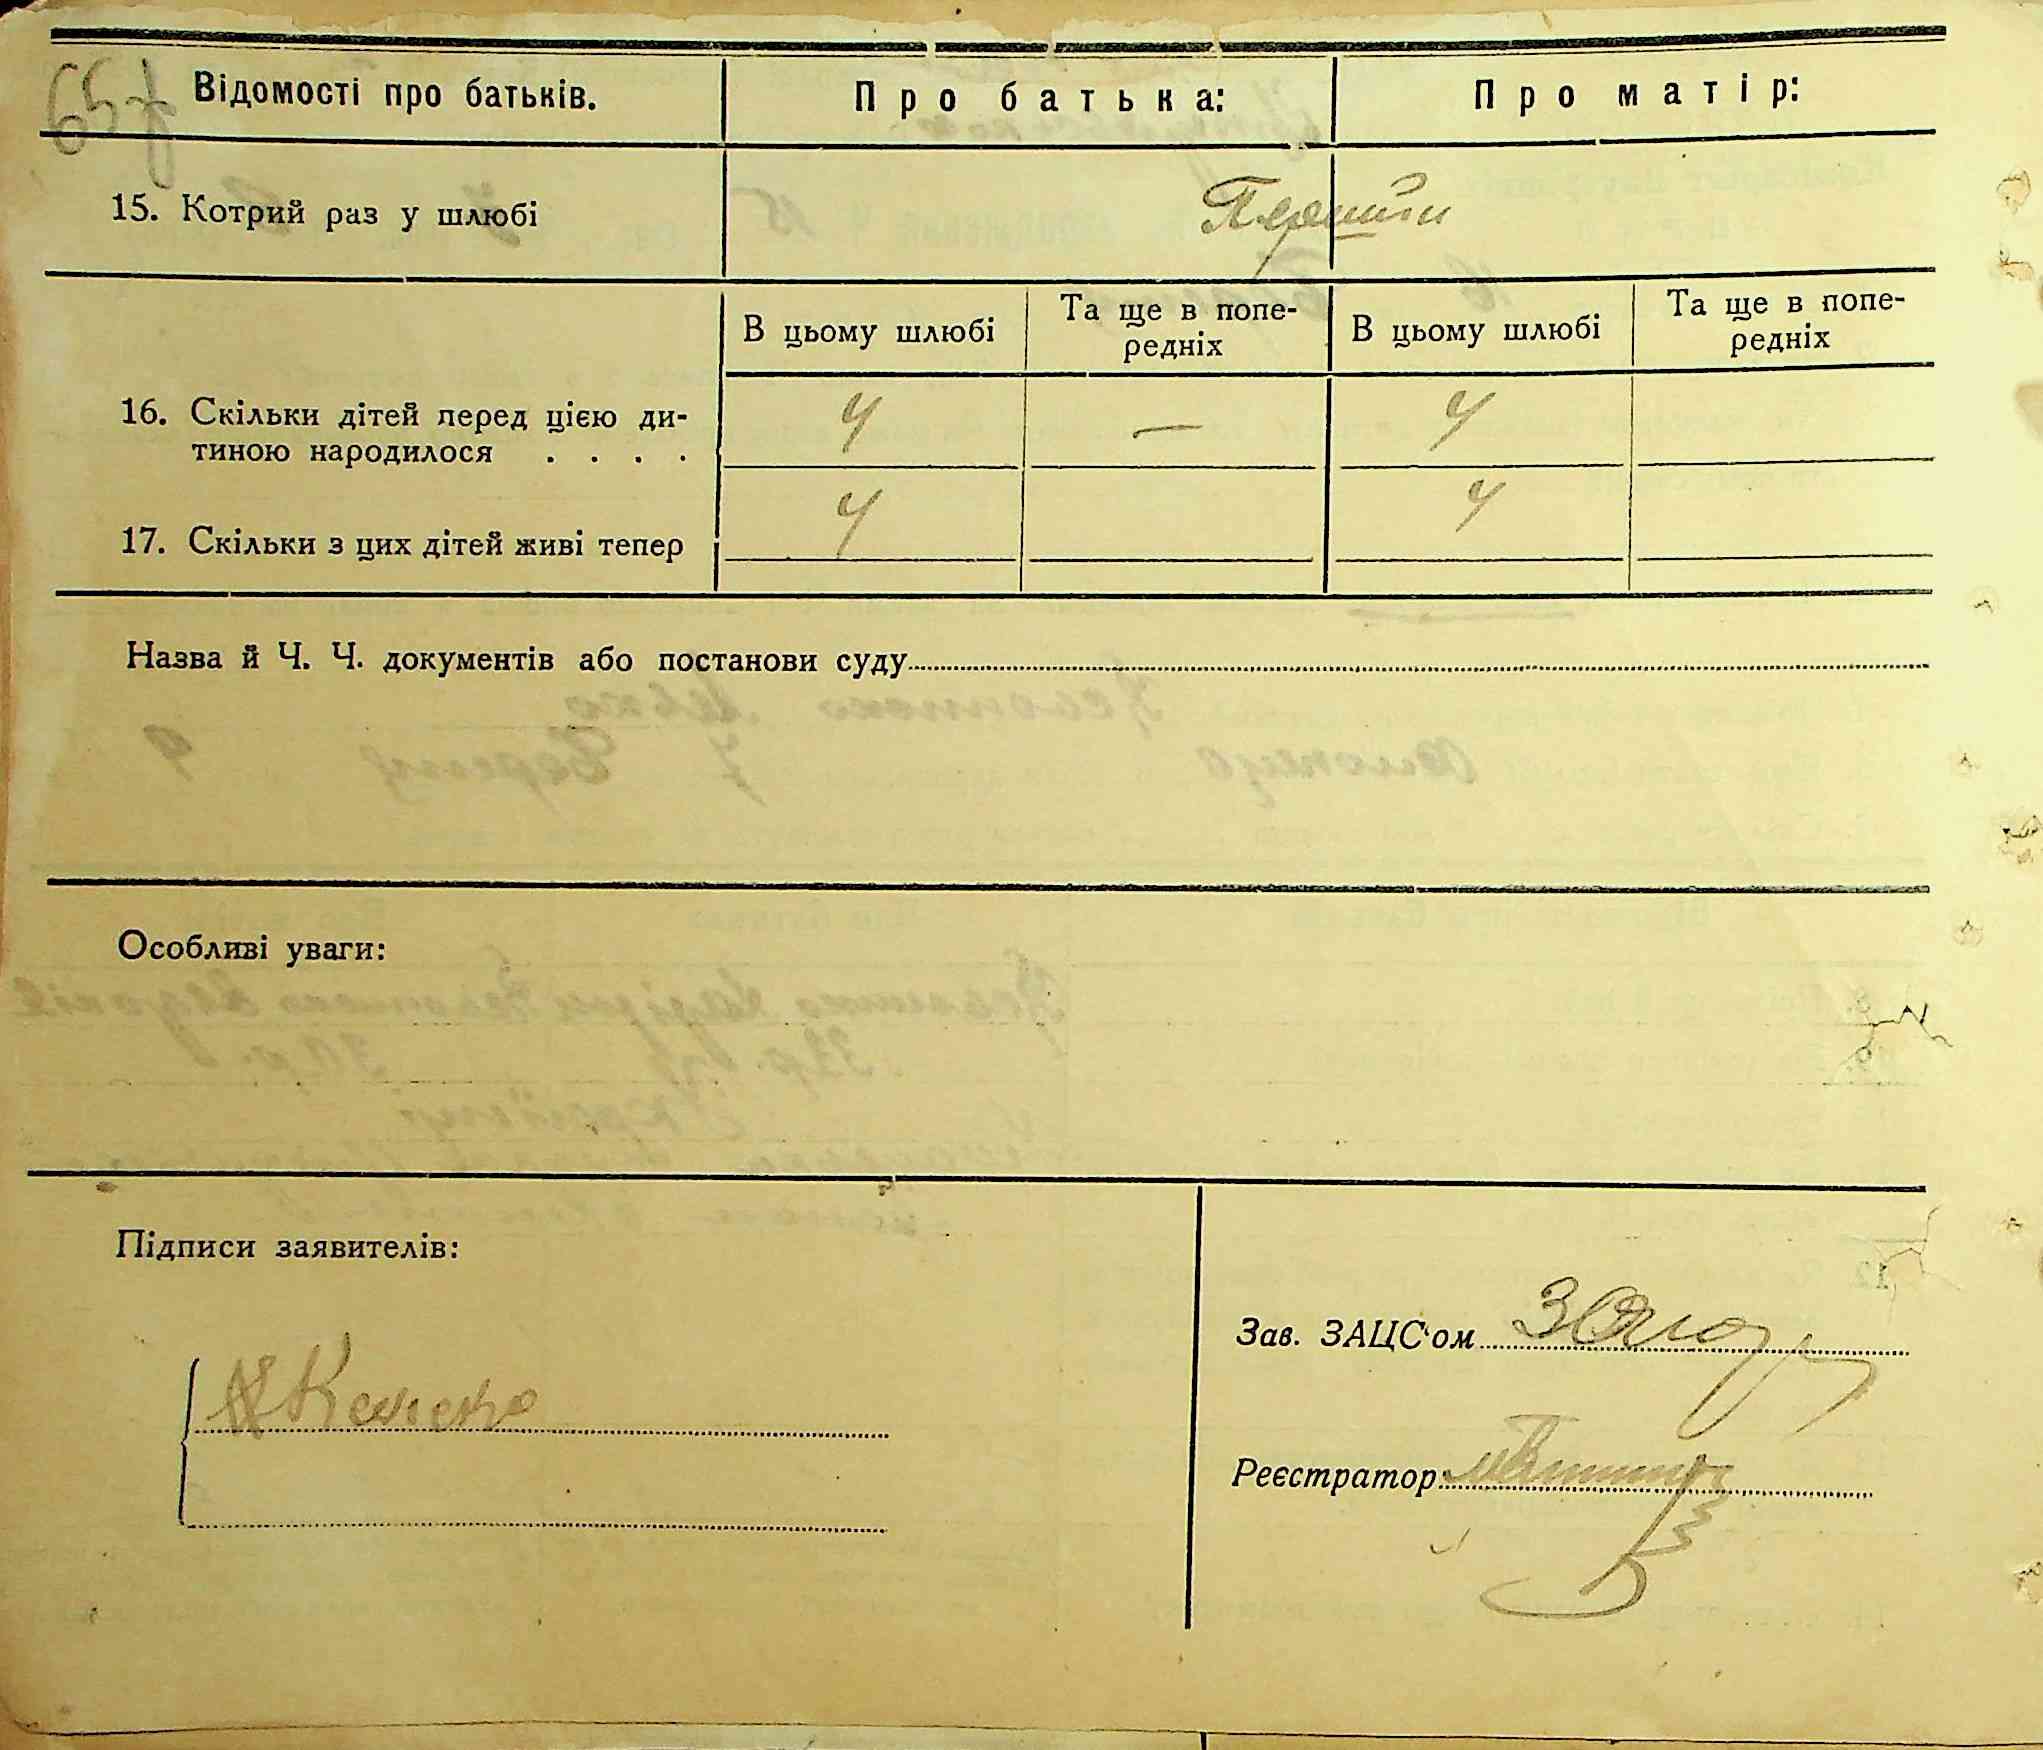 Відомості про батьків. Про батька: Про матір:
15. Котрий раз у шлюбі Перший
В цьому шлюбі Та ще в попе- В цьому шлюбі Та ще в попе-
редніх редніх
16. Скільки дітей перед цією ди- 4 — 4
тиною народилося . . . .
17. Скільки з цих дітей живі тепер 4 4
Назва й Ч. Ч. документів або постанови суду
Особливі уваги:
Підписи заявителів:
Зав. ЗАЦС'ом
Реєстратор: